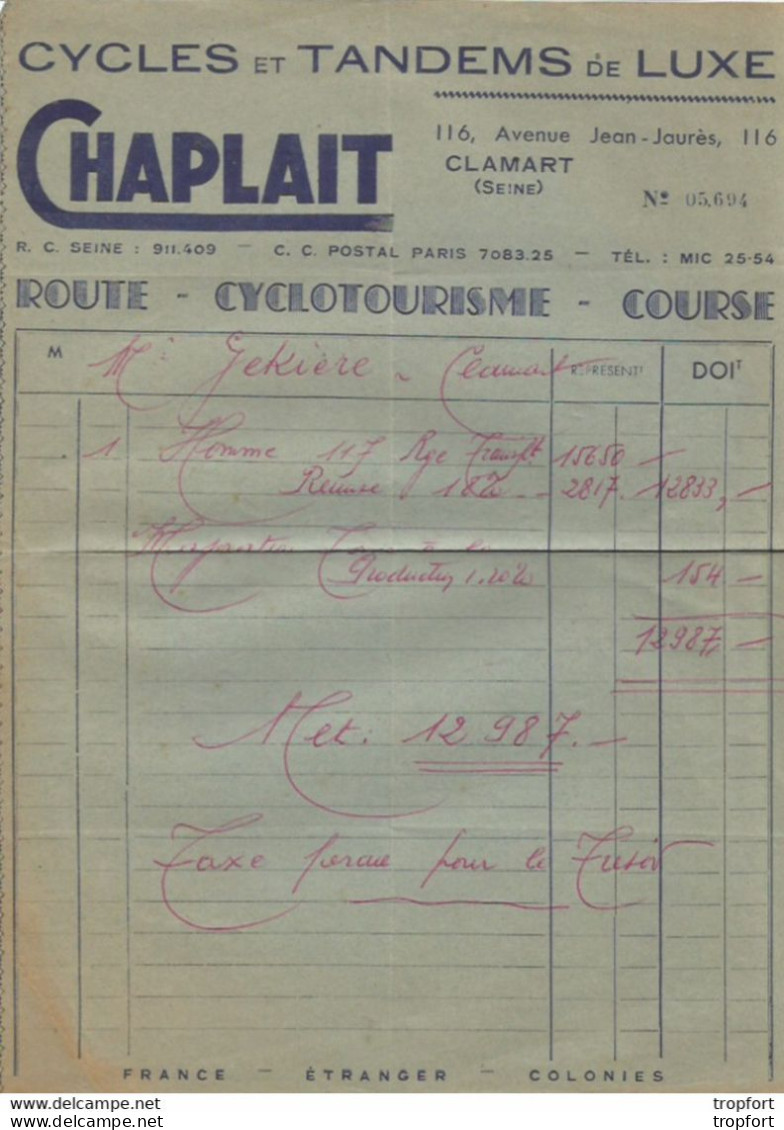 CYCLES ET TANDEMS DE LUXE
CHAPLAIT
116, Avenue Jean-Jaurès, 116
CLAMART
(SEINE)
Nº 05,694
R. C. SEINE : 911.409 — C. C. POSTAL PARIS 7083.25 — TÉL. : MIC 25-54
ROUTE - CYCLOTOURISME - COURSE
M Mr Jekiere - Clamart REPRÉSENTT DOIT
1 Homme 117 Rge 15650 —
Remise 18% - 2817. 12833, —
Production 1.20% 154 —
12987, —
Net : 12 987. —
Taxe percue pour le Tresor
FRANCE — ÉTRANGER — COLONIES
www.delcampe.net tropfort
www.delcampe.net tropfort